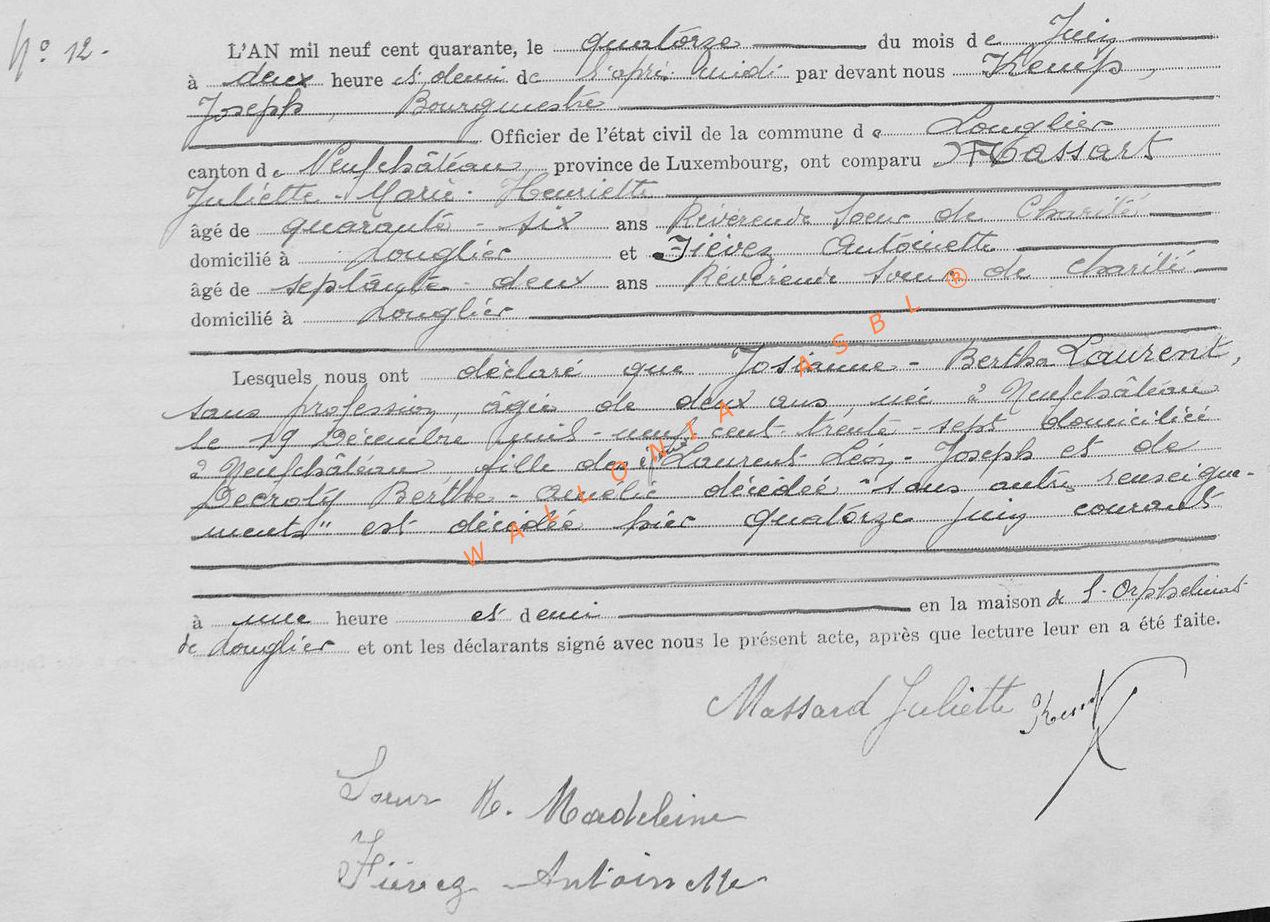 N° 12 -
L'AN mil neuf cent quarante, le quatorze du mois de Juin
à deux heure et demi de l'après midi par devant nous
Joseph, Bourgmestre
Officier de l'état civil de la commune de Longlier
canton de Neufchâteau province de Luxembourg, ont comparu Massart
Juliette - Marie - Henriette
âgé de quarante - six ans Révérende Soeur de Charité
domicilié à Longlier et Fiévez Antoinette
âgé de septante - deux ans Révérende Soeur de charité
domicilié à Longlier
Lesquels nous ont déclaré que Josianne - Bertha Laurent,
sans profession, âgée de deux ans née à Neufchâteau
le 19 Décembre mil - neuf cent - trente - sept domiciliée
à Neufchâteau fille de Laurent Léon - Joseph et de
Decroty Berthe - Amélie décédée "sans autres renseigne-
ments" est décédée hier quatorze juin courant
à une heure et demi en la maison de l'Orphelinat
de Longlier et ont les déclarants signé avec nous le présent acte, après que lecture leur en a été faite.
Massard Juliette
Soeur M. Madeleine
Fiévez Antoinette
WALLONIA ASBL ®